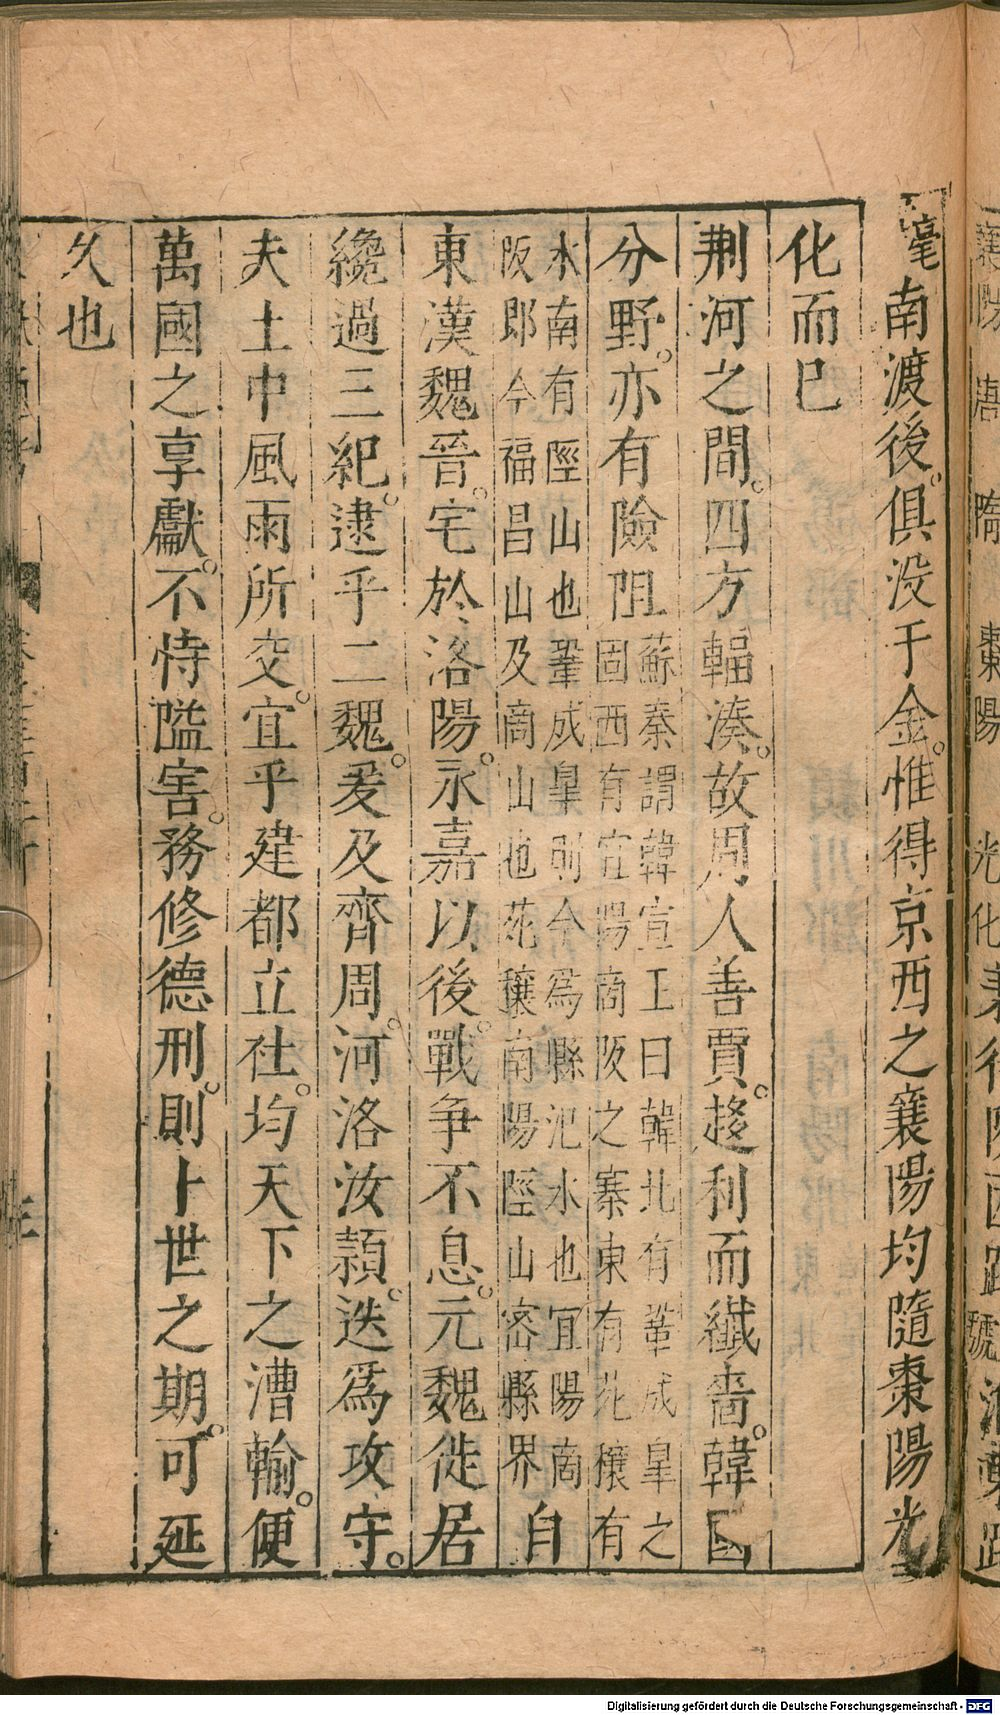 襄陽 唐 隋 棗陽 光化
亳南渡後俱没于金惟得京西之襄陽均隨棗陽光
化而已
荆河之間四方輻湊故周人善賈趍利而纎嗇韓國
分野亦有險阻蘇秦謂韓宣王曰韓北有鞏成皐之
固西有宜陽商阪之寨東有宛穰有
水南有陘山也鞏成皐則今爲縣汜水也宜陽商
阪郎今福昌山及商山也宛穰南陽陘山密縣界自
東漢魏晉宅於洛陽永嘉以後戰争不息元魏徙居
纔過三紀逮乎二魏爰及齊周河洛汝潁迭爲攻守
夫土中風雨所交宜乎建都立社均天下之漕輸便
萬國之享獻不恃隘害務修德刑則卜世之期可延
久也
Digitalisierung gefördert durch die Deutsche Forschungsgemeinschaft - DFG